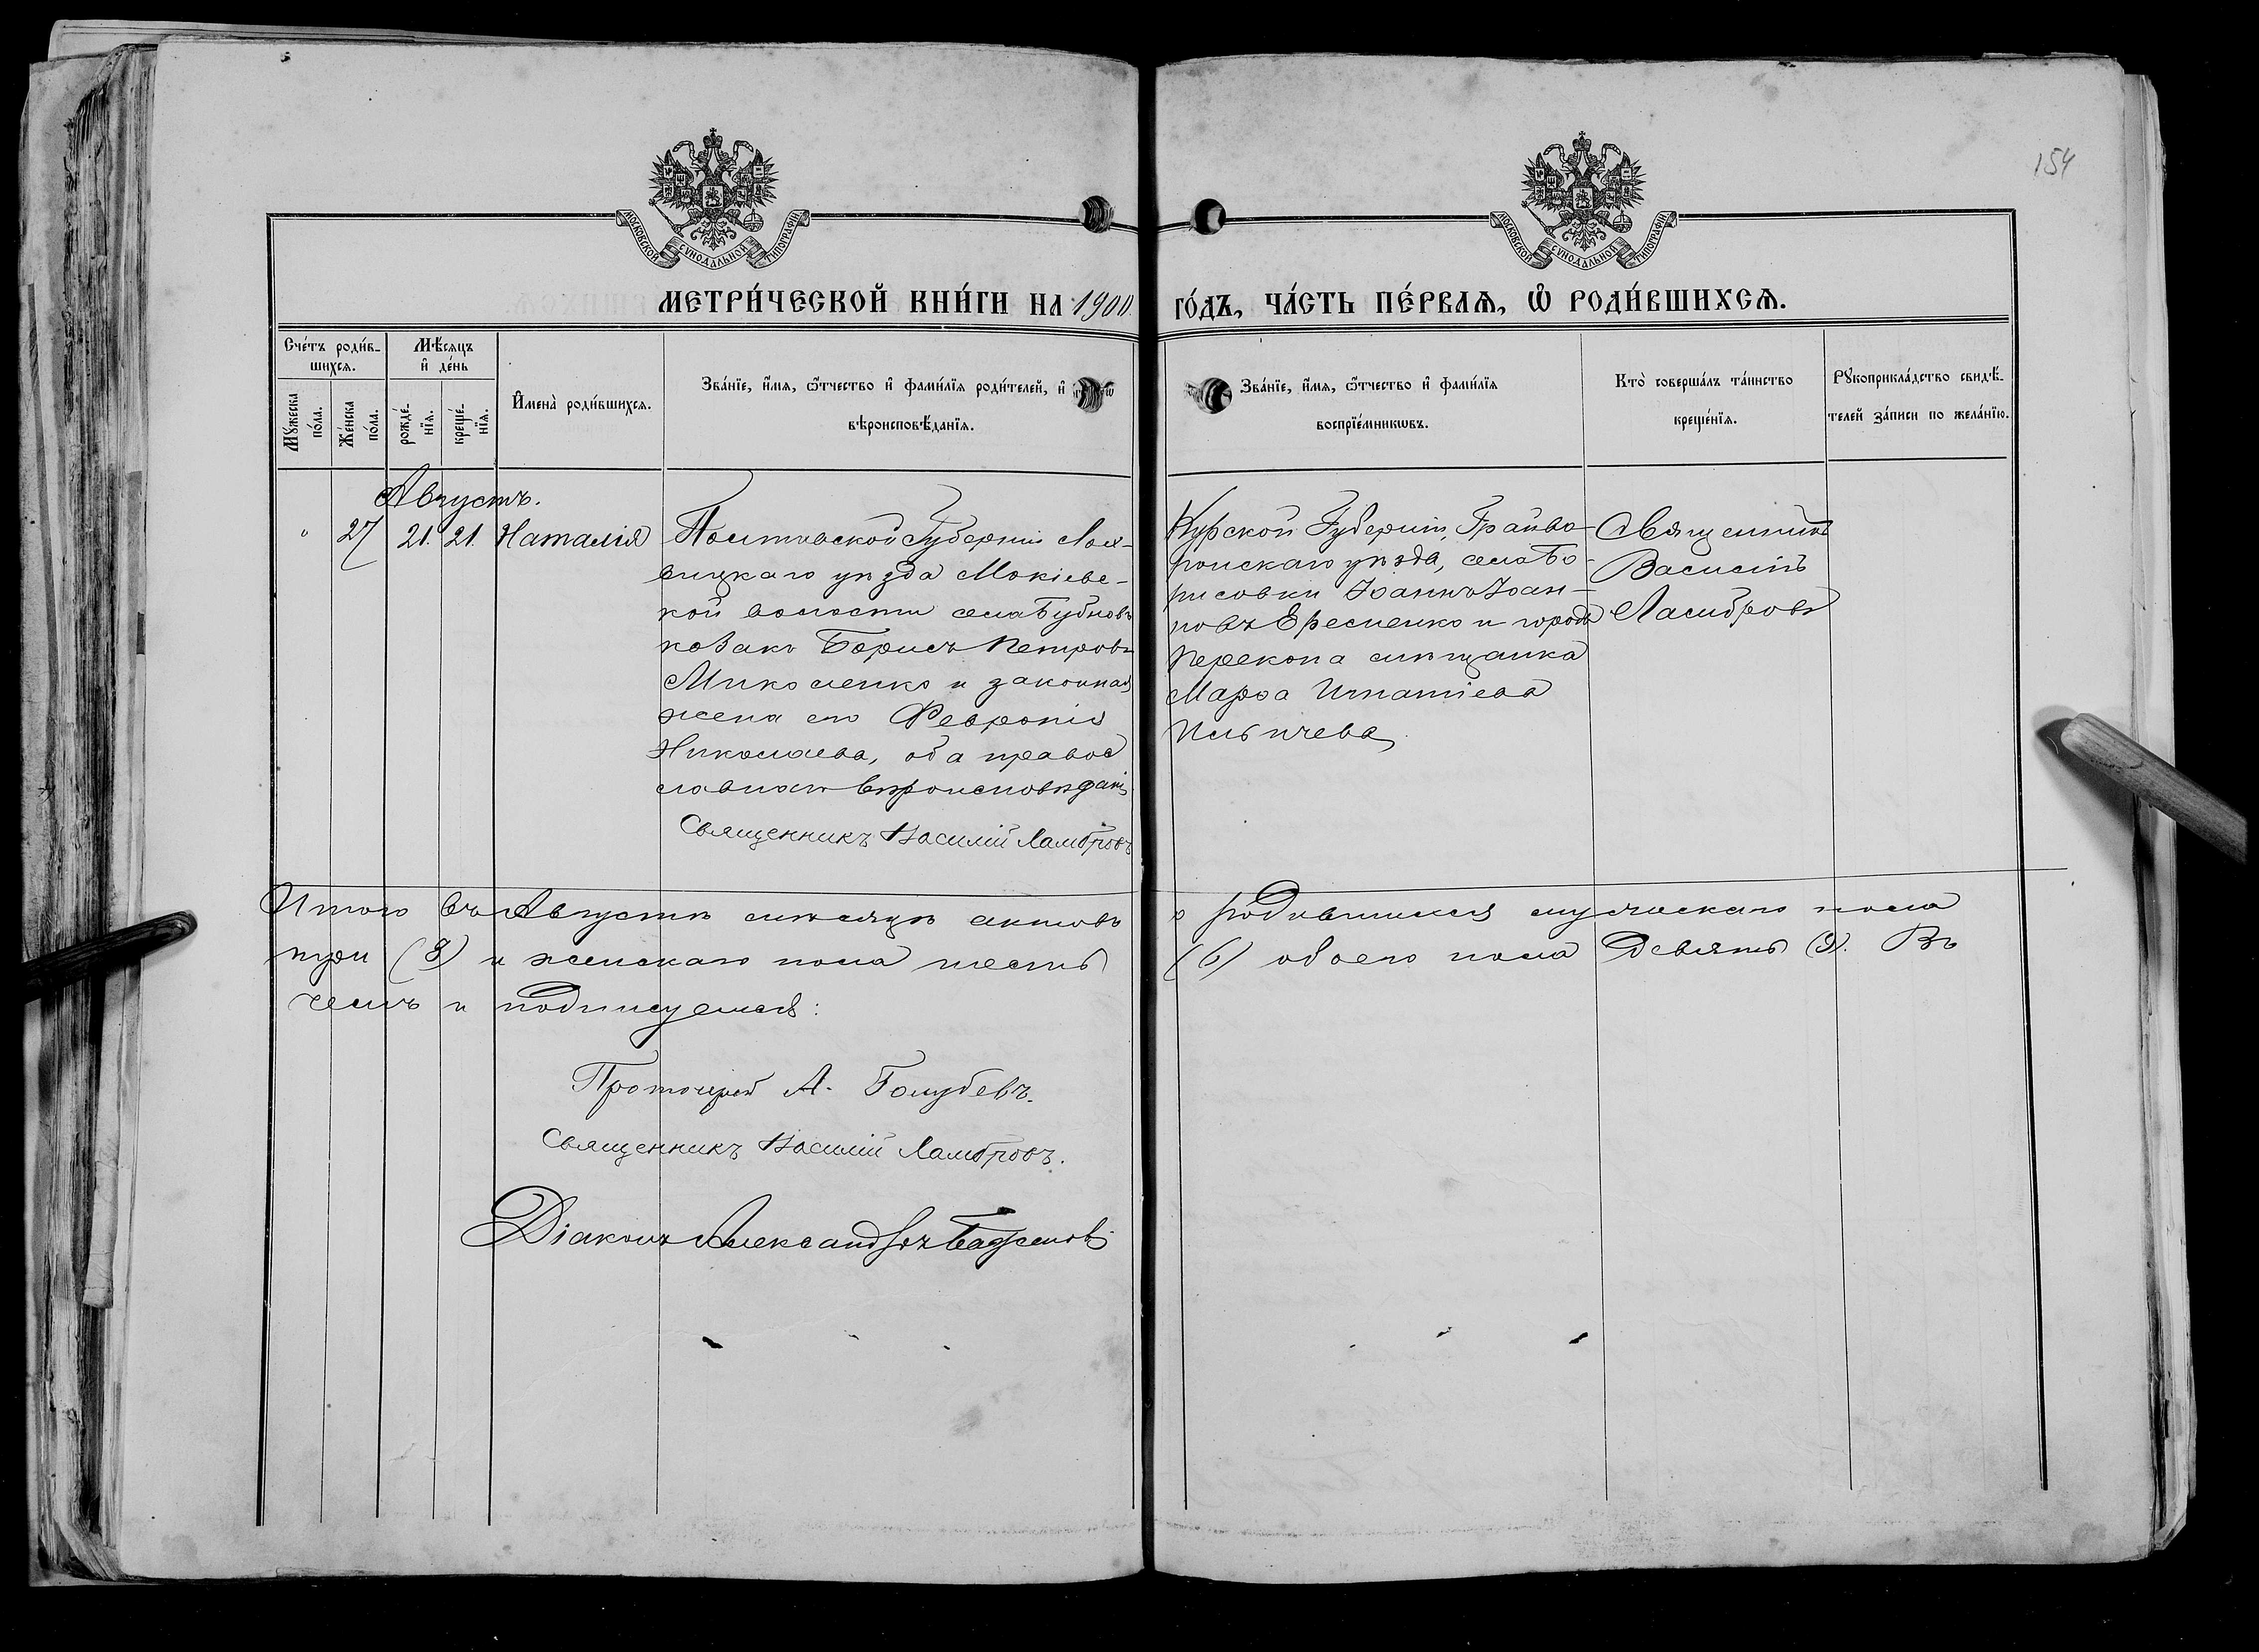 154
МОСКОВСКОЙ СѴНОДАЛЬНОЙ ТИПОГРАФІИ
МОСКОВСКОЙ СѴНОДАЛЬНОЙ ТИПОГРАФІИ
МЕТРИ́ЧЕСКОЙ КНИ́ГИ НА 1900 ГО́ДЪ, ЧА́СТЬ ПЕ́РВАѦ, Ѽ РОДИ́ВШИХСѦ.
Сче́тъ роди́в-
шихсѧ.
Мꙋ́жеска по́ла.
Же́нска по́ла.
Мѣ́сѧцъ
и҆ де́нь
рожде́-
нїѧ.
креще́-
нїѧ.
И҆мена̀ роди́вшихсѧ.
Зва́нїе, и҆́мѧ, ѻ҆́тчество и҆ фами́лїѧ роди́телей, и҆
вѣроисповѣ́данїѧ.
Зва́нїе, и҆́мѧ, ѻ҆́тчество и҆ фами́лїѧ
воспрїе́мникѡвъ.
Кто̀ соверша́лъ та́инство
креще́нїѧ.
Рꙋкоприкла́дство свидѣ́-
телей за́писи по жела́нїю.
Августъ.
" 27 21. 21. Наталія
Полтавской Губерніи Лох-
вицкаго уѣзда Мокіевс-
кой волости села Бубновъ
козакъ Борисъ Петровъ
Миколенко и законная
жена его Февронія
Николаева, оба правос
славнаго вѣроисповѣданія
Священникъ Василій Ламбровъ
Курской Губерніи, Грайво-
ронскаго уѣзда, села Бо-
рисовки Іоаннъ Іоан-
новъ Ересненко и города
Перекопа мѣщанка
Марѳа Игнатіева
Ильичева
Священникъ
Василій
Ламбровъ
Итого въ Августѣ мѣсяцѣ актовъ о родившихся мужескаго пола
три (3) и женскаго пола шесть (6) обоего пола девять (9). Въ
чемъ и подписуемся:
Протоіерей А. Голубевъ.
Священникъ Василій Ламбровъ.
Діаконъ Александръ